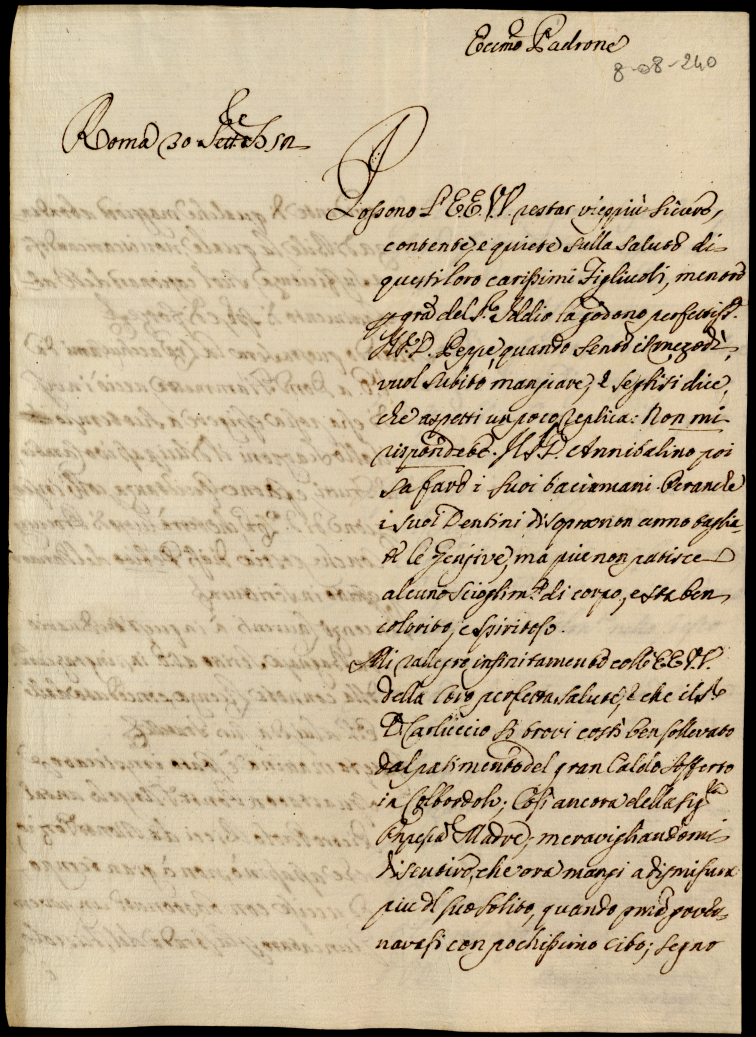 Eccmo Padrone
8-08-240
Roma 30 Settbre
Possono l'EE.VV. restar vieppiù sicure,
contente, e quiete sulla salute di
questi loro carissimi Figliuoli, mentre
p grã del Sre Iddio la godono perfettissa.
Il S.D. Peppe, quando sente il mezodì,
vuol subito mangiare, e se gli si dice,
che aspetti un poco, replica: Non mi
rispondete. Il S.D. Annibalino poi
sa fare i suoi baciamani. Peranche
i suoi Dentini di sopra non anno taglia-
te le Gensive, ma pure non patisce
alcuno scioglimto di corpo, e sta ben
colorito, e spiritoso.
Mi rallegro infinitamente coll'EE.VV.
della loro perfetta salute, e che il Sre
D. Carluccio si trovi costì ben sollevato
dal patimento del gran Caldo sofferto
in Colbordolo; Così ancora della Sigra
Pnpessa Madre, meravigliandomi
di sentire, che ora mangi a dismisura
più del suo solito, quando prìa gover-
navasi con pochissimo cibo; segno